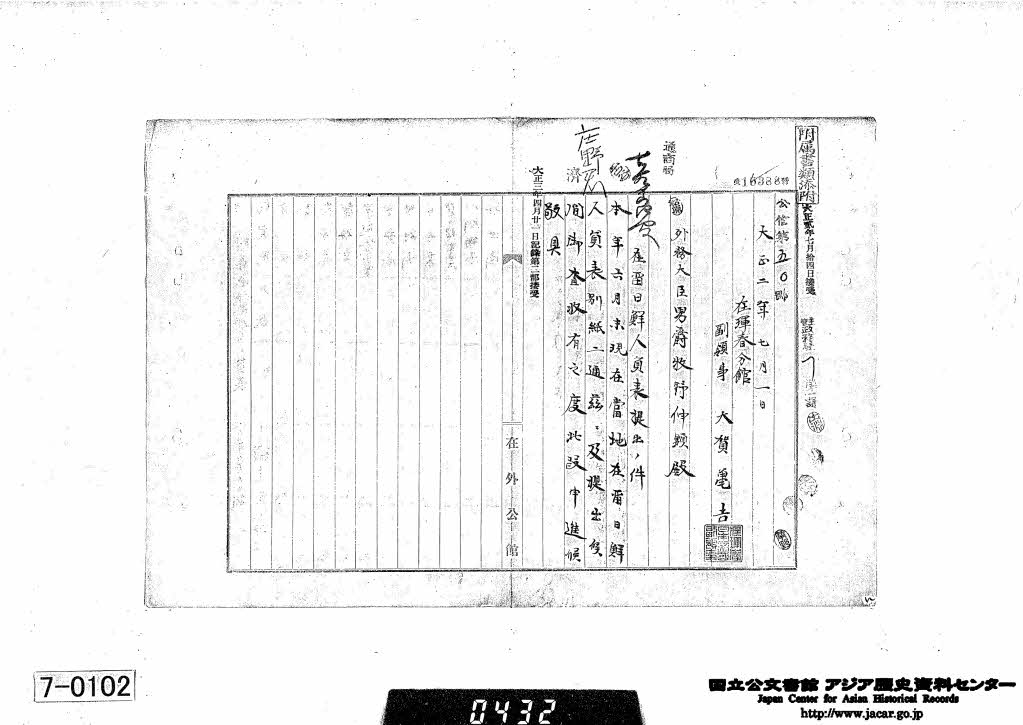 附属書類添附
大正貳年七月拾四日接受
通商局
公信第五〇號
大正二年七月一日
在琿春分館
副領事 大賀亀吉
外務大臣男爵牧野伸顕殿
在留日鮮人員表提出ノ件
本年六月末現在當地在留日鮮
人員表別紙二通茲ニ及提出候
間御査収有之度此段申進候
敬具
濟
大正三年四月廿一日記録第二部接受
在外公館
7-0102
0432
国立公文書館 アジア歴史資料センター
Japan Center for Asian Historical Records
http://www.jacar.go.jp